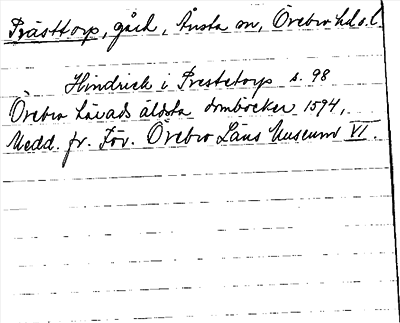 Prästtorp, gård, Ånsta sn, Örebro hd o. l.
Hindrich i Prestetorp s. 98
Örebro härads äldsta domböcker 1594,
Medd. fr. För. Örebro Läns Museum VI.